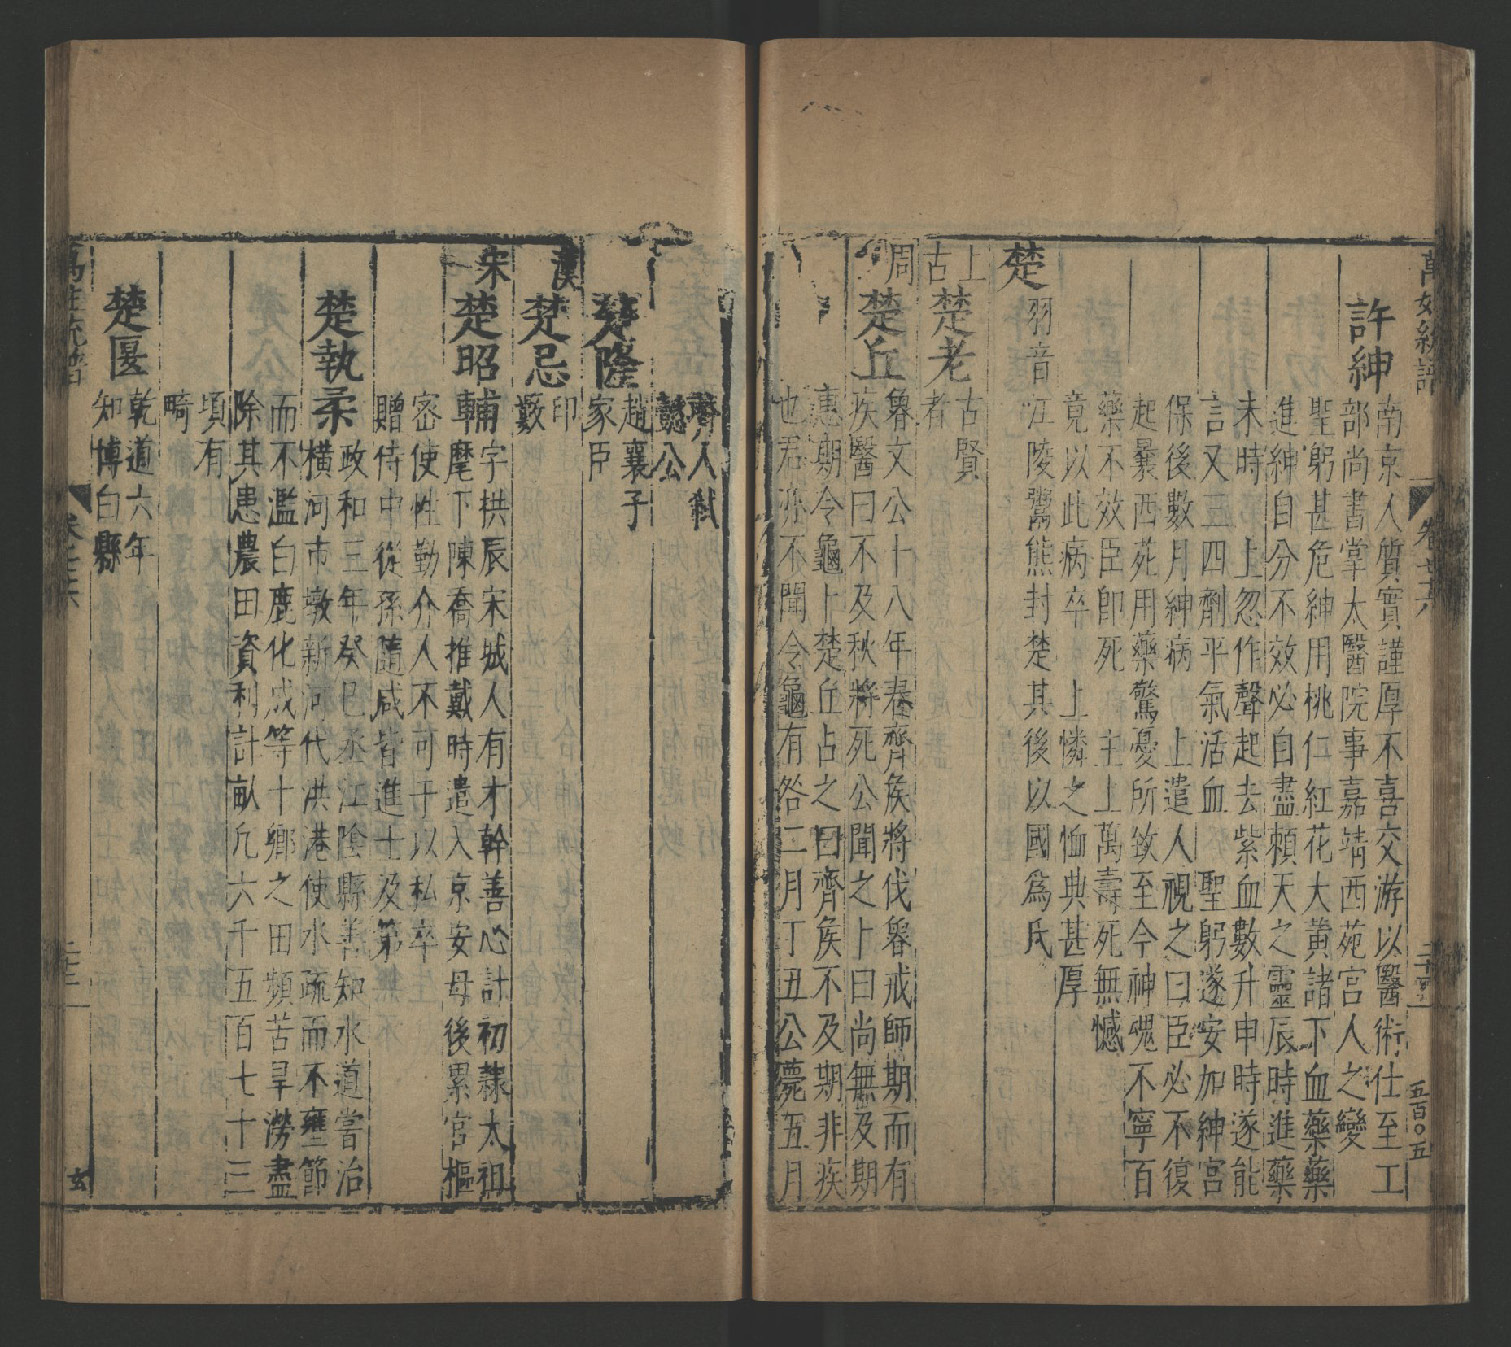 萬姓統譜
卷七十六
二十二
五百〇五
許紳
南京人質實謹厚不喜交游以醫術仕至工
部尚書掌太醫院事嘉靖西苑宮人之變
聖躬甚危紳用桃仁紅花大黃諸下血藥藥
進紳自分不效必自盡賴天之靈辰時進藥
未時 上忽作聲起去紫血數升申時遂能
言又三四劑平氣活血 聖躬遂安加紳宮
保後數月紳病 上遣人視之曰臣必不復
起曩西苑用藥驚憂所致至今神魂不寧百
藥不效臣即死 主上萬壽死無憾
竟以此病卒 上憐之恤典甚厚
楚 羽音 江陵鬻熊封楚其後以國爲氏
上古
楚老 古賢
者
周
楚丘 魯文公十八年春齊侯將伐魯戒師期而有
疾醫曰不及秋將死公聞之卜曰尚無及期
惠期令龜卜楚丘占之曰齊侯不及期非疾
也君亦不聞令龜有咎二月丁丑公薨五月
齊人弒
懿公
楚隆 趙襄子
家臣
漢
楚忌 印
藪
宋
楚昭輔 字拱辰宋城人有才幹善心計初隸太祖
麾下陳橋推戴時遣入京安母後累官樞
密使性勤介人不可干以私卒
贈侍中從孫隨咸皆進士及第
楚執柔 政和三年癸巳丞江陰縣善知水道嘗治
橫河市墩新河代洪港使水疏而不壅節
而不濫白鹿化成等十鄉之田頻苦旱澇盡
除其患農田資利計畝凡六千五百七十三
頃有
畸
楚偃 乾道六年
知博白縣
萬姓統譜
卷七十六
二十二
玄